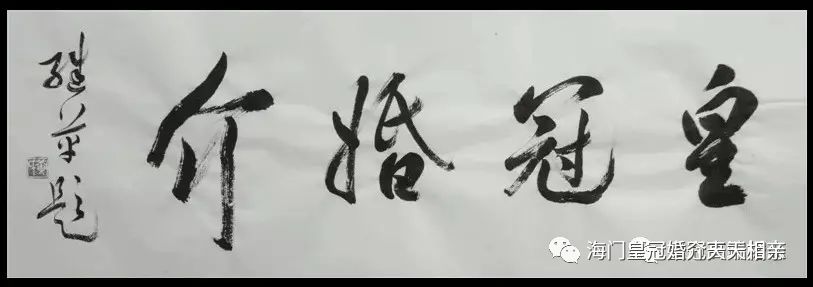 皇冠婚介
继平题
海门皇冠婚介
天天相亲